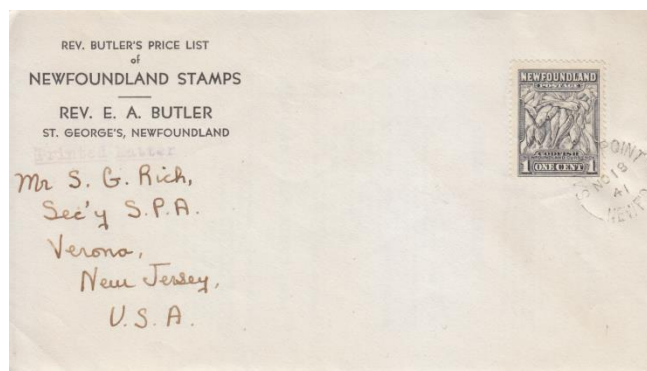 REV. BUTLER'S PRICE LIST
of
NEWFOUNDLAND STAMPS
REV. E. A. BUTLER
ST. GEORGE'S, NEWFOUNDLAND
Printed Matter
Mr S. G. Rich,
Sec'y S.P.A.
Verona,
New Jersey,
U.S.A.
NEWFOUNDLAND
POSTAGE
CODFISH
1 ONE CENT 1
POINT
NO 18
41
NEWF'D